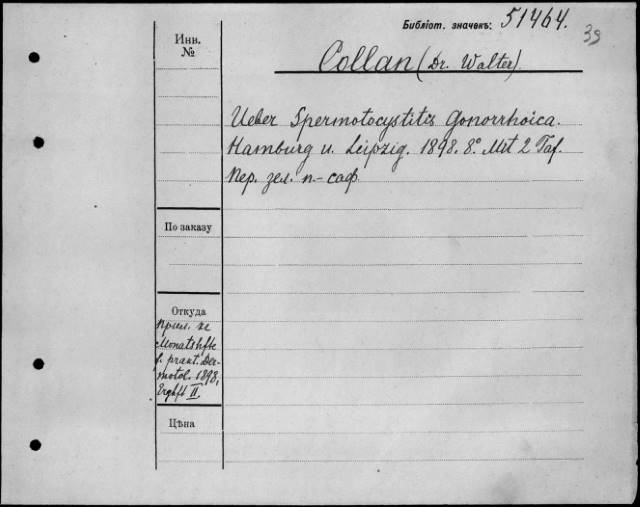 Библіот. значекъ: 51464.
39
Инв.
№
Collan (Dr. Walter).
Ueber Spermotocystitis Gonorrhoica.
Hamburg u. Leipzig. 1898. 8º. Mit 2 Taf.
Пер. зел. п-саф.
По заказу
Откуда
Прил. къ
Monatshfte
f. prakt. Der-
matol. 1898,
Erghft II.
Цѣна